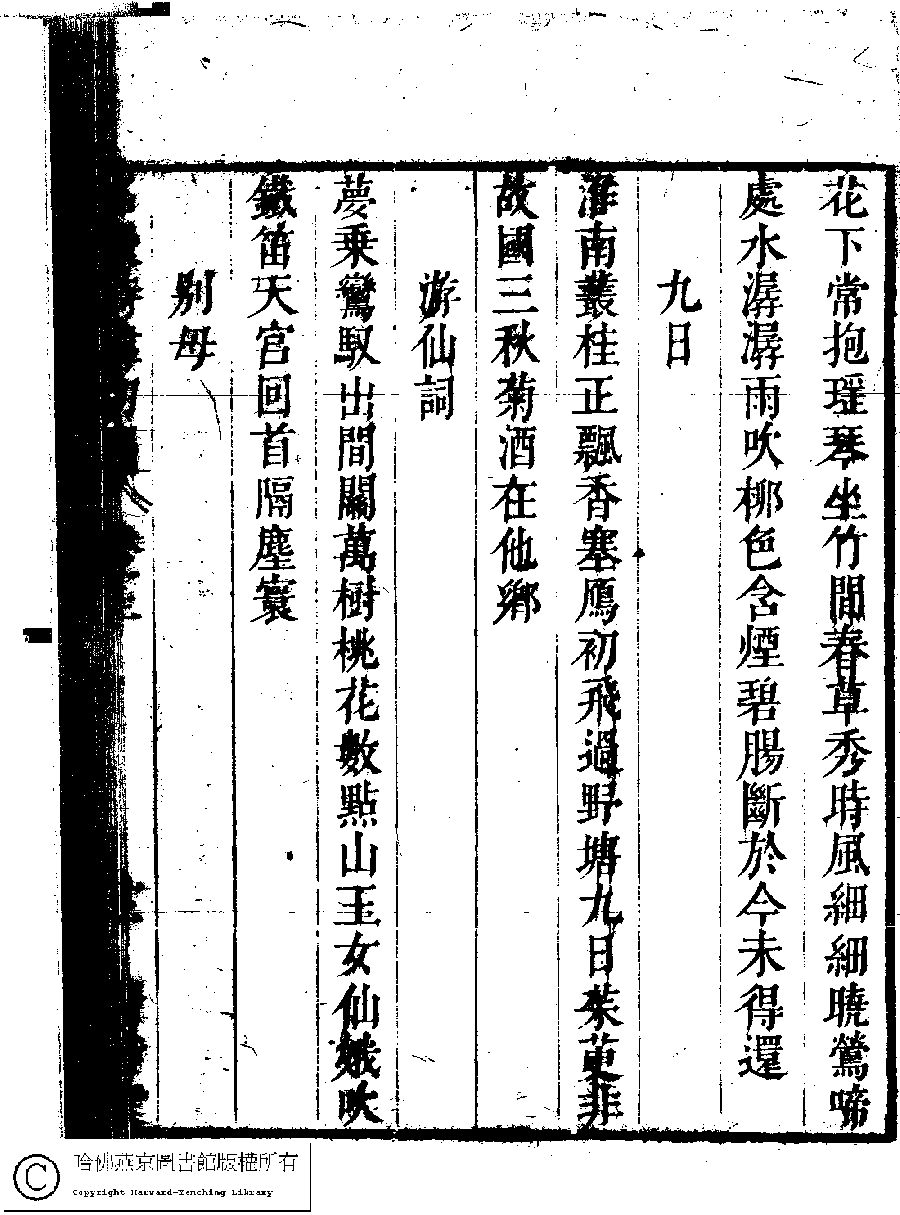 花下常抱瑶琴坐竹間春草秀時風細細曉鶯啼
處水潺潺雨吹柳色含煙碧腸斷於今未得還
九日
淮南叢桂正飄香塞鴈初飛過野塘九日茱萸非
故國三秋菊酒在他鄉
游仙詞
夢乗鸞馭出間關萬樹桃花數點山玉女仙娥吹
鐵笛天宫回首隔塵寰
别母
哈佛燕京圖書館版權所有
Copyright Harvard-Yenching Library